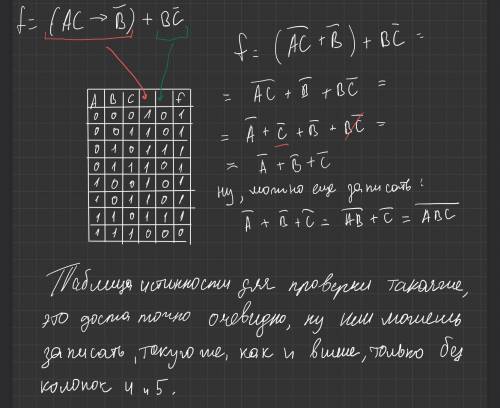 f = (AC → B̅) + BC̅
A B C f
0 0 0 1 0 1
0 0 1 1 0 1
0 1 0 1 1 1
0 1 1 1 0 1
1 0 0 1 0 1
1 0 1 1 0 1
1 1 0 1 1 1
1 1 1 0 0 0
f = (A̅C̅ + B̅) + BC̅ =
= A̅C̅ + B̅ + BC̅ =
= A̅ + C̅ + B̅ + BC̅ =
= A̅ + B̅ + C̅
ну, можно ещё записать:
A̅ + B̅ + C̅ = A̅B̅ + C̅ = A̅B̅C̅
Таблица истинности для проверки такая же,
это достаточно очевидно, ну или можешь
записать, такую же, как и выше, только без
колонок 4 и 5.